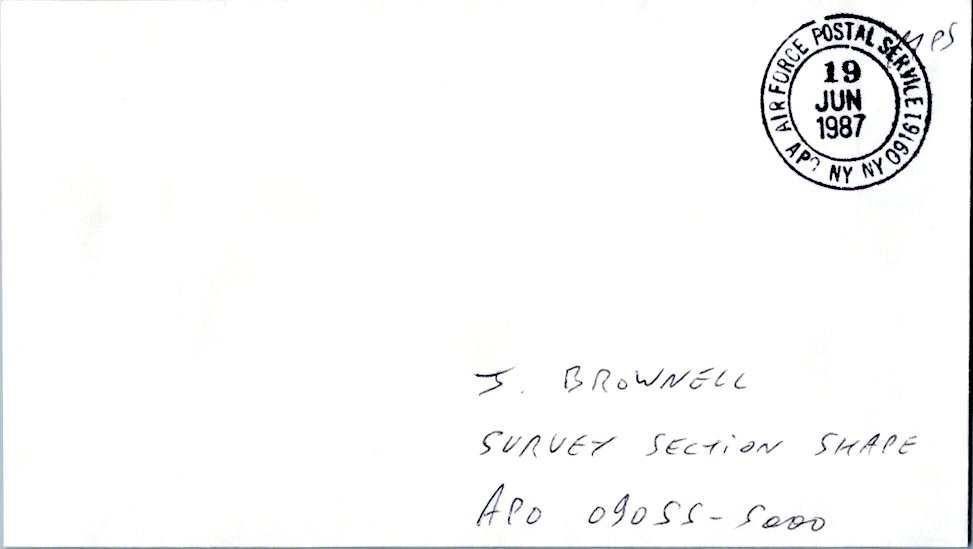 MPS
AIR FORCE POSTAL SERVICE
19
JUN
1987
APO NY NY 09161
J. BROWNELL
SURVEY SECTION SHAPE
APO 09055-5000